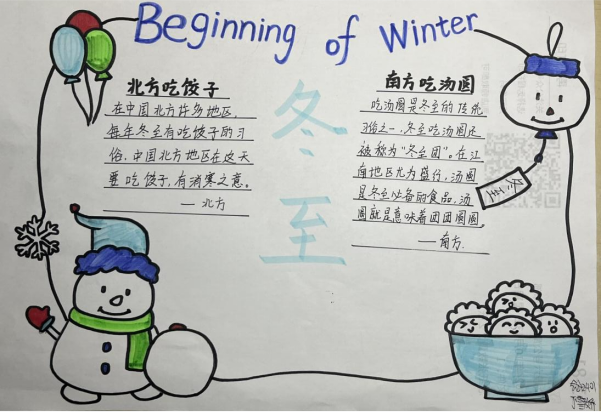 Beginning of Winter
北方吃饺子
在中国北方许多地区,
每年冬至有吃饺子的习
俗,中国北方地区在这天
要吃饺子,有消寒之意。
——北方
冬至
南方吃汤圆
吃汤圆是冬至的传统
习俗之一,冬至吃汤圆还
被称为“冬至团”。在江
南地区尤为盛行,汤圆
是冬至必备的食品,汤
圆就是意味着团团圆圆
——南方.
冬至